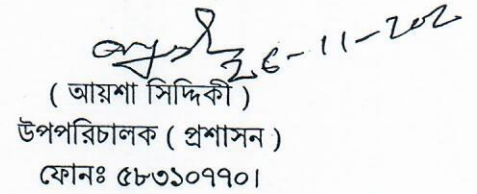 26-11-202
( আয়শা সিদ্দিকী )
উপপরিচালক ( প্রশাসন )
ফোনঃ ৫৮৩১০৭৭০।